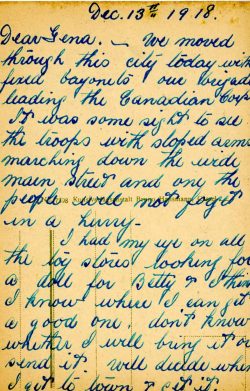 Dec. 13th 1918.
Dear Gena. — We moved
through this city today with
fixed bayonets our brigade
leading the Canadian Corps
It was some sight to see
the troops with sloped arms
marching down the wide
main street and one the
people will not forget
in a hurry—
I had my eye on all
the toy stores looking for
a doll for Betty & I think
I know where I can get
a good one, don't know
whether I will bring it or
send it. Will decide when
I get to town & get it.